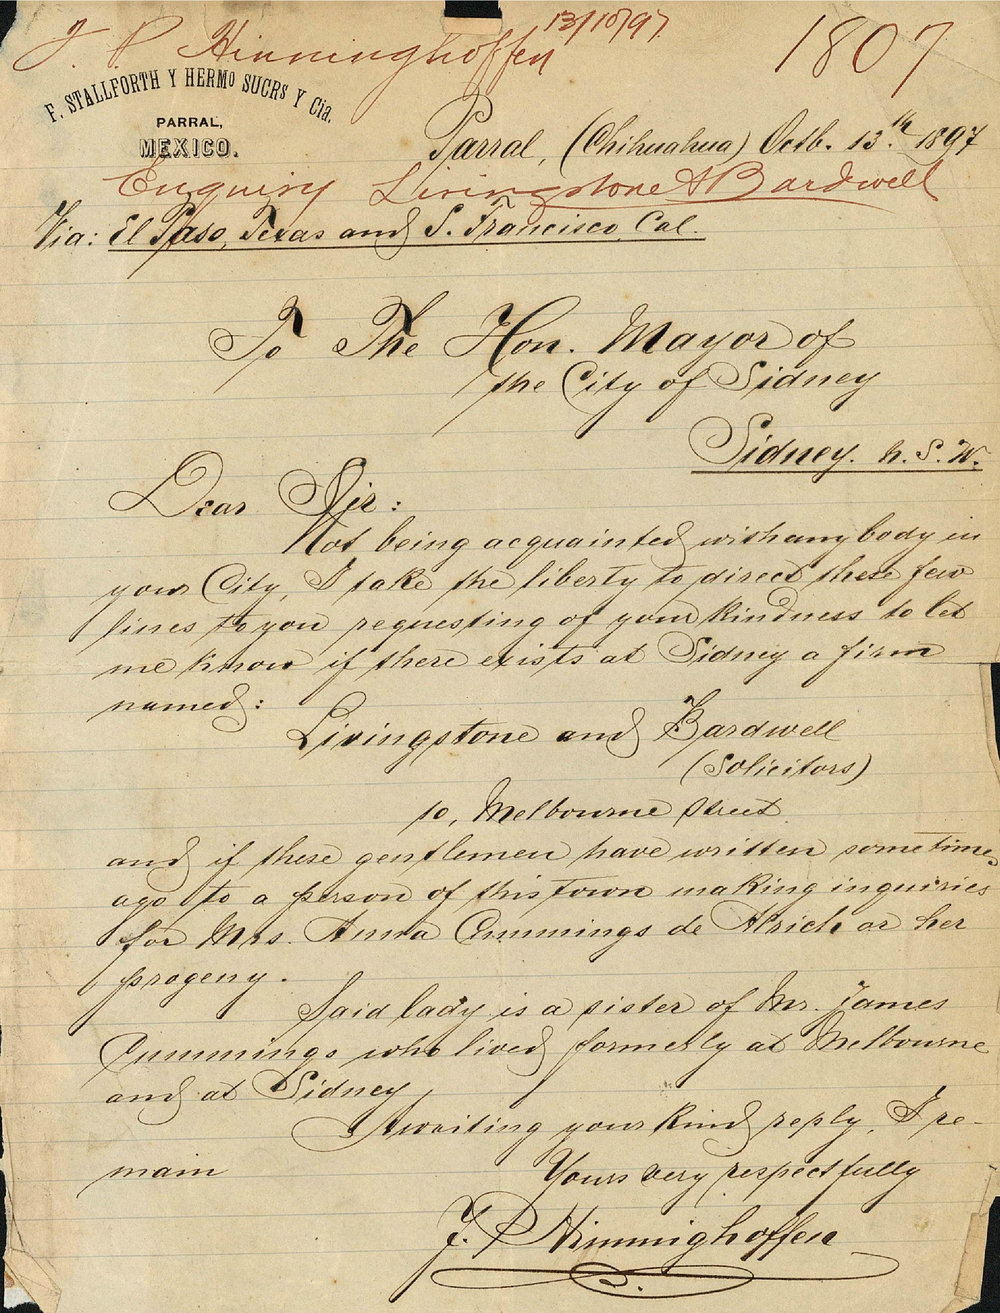 J. P. Hinninghoffen 13/10/97 1807
F. STALLFORTH Y HERMO SUCRS Y Cia.
PARRAL,
MEXICO.
Parral, (Chihuahua) Octb. 13.th 1897
Enquiry Livingstone & Bardwell
Via: El Paso, Texas and S. Francisco, Cal.
To The Hon. Mayor of
the City of Sidney
Sidney. N. S. W.
Dear Sir:
Not being acquainted with any body in
your City, I take the liberty to direct these few
lines to you requesting of your kindness to let
me know if there exists at Sidney a firm
named:
Livingstone and Bardwell
(Solicitors)
10, Melbourne Street.
and if these gentlemen have written sometimes
ago to a person of this town making inquiries
for Mrs. Anna Cummings de Alrich or her
progeny.
Said lady is a sister of Mr. James
Cummings who lived formerly at Melbourne
and at Sidney,
Awaiting your kind reply, I re-
main
Yours very respectfully
J. P. Hinninghoffen